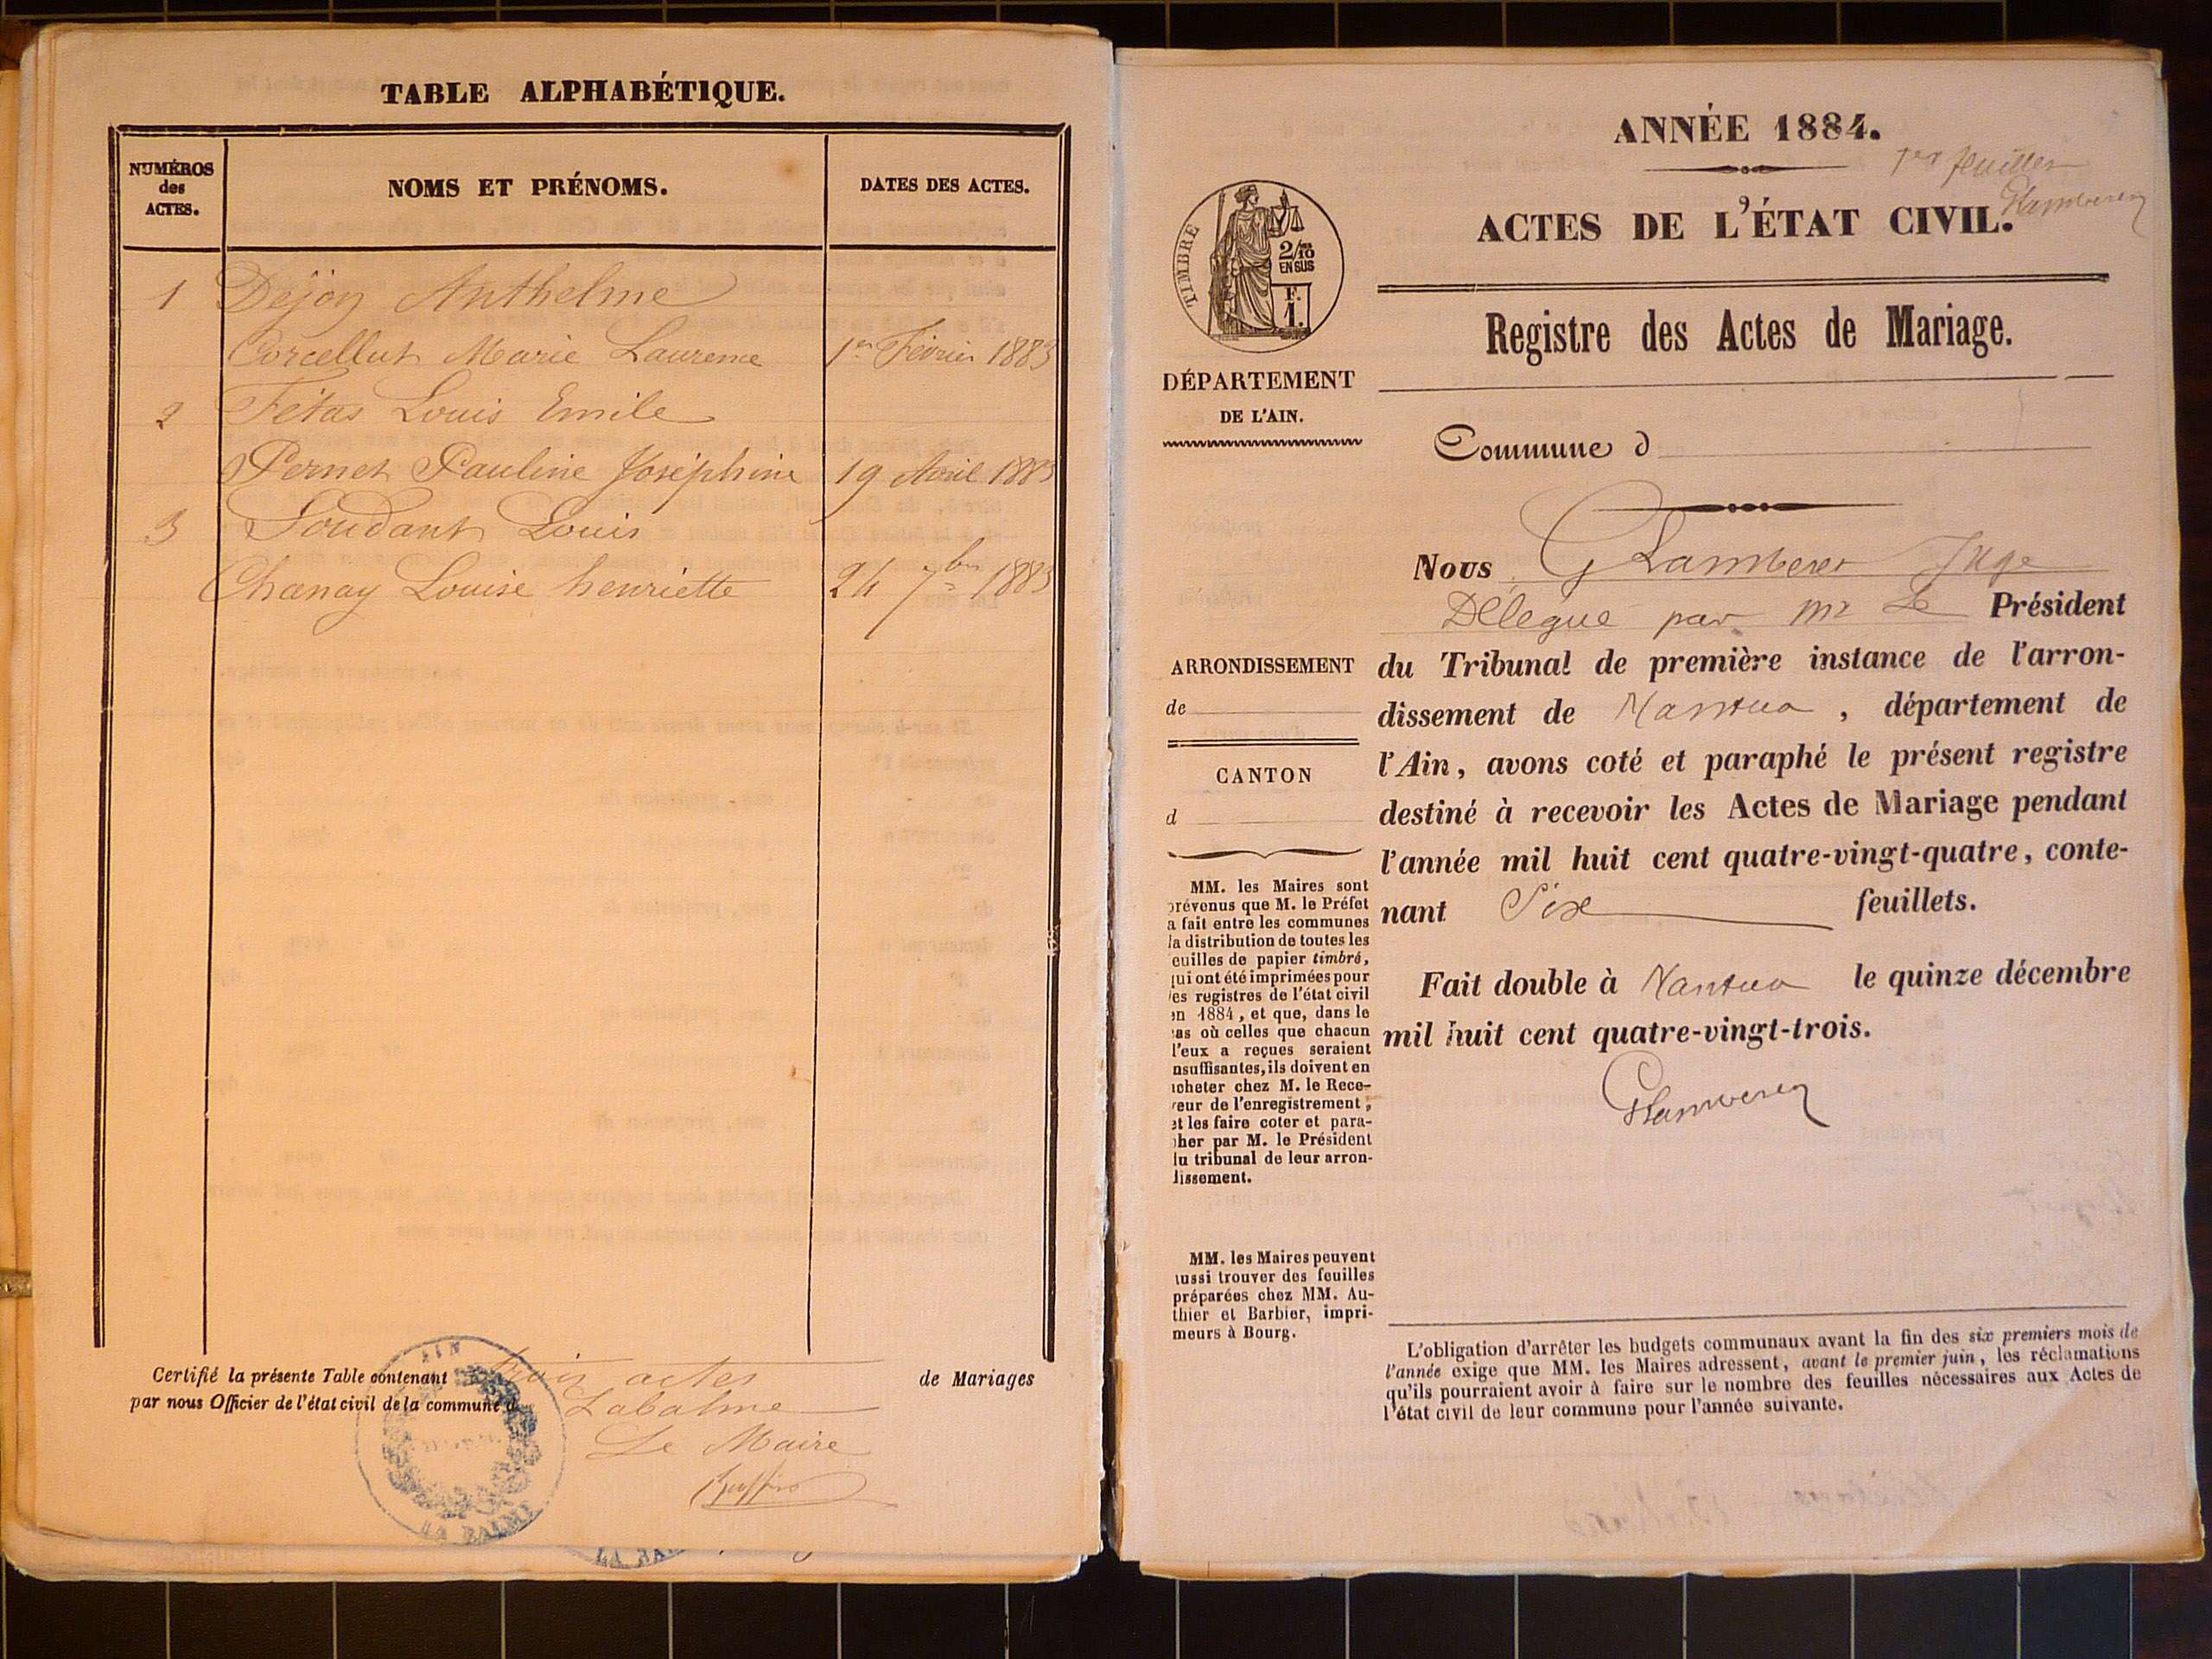 TABLE ALPHABÉTIQUE.
NUMÉROS des ACTES.
NOMS ET PRÉNOMS.
DATES DES ACTES.
1 Déjoy Anthelme
Corcellut Marie Laurence 1er Février 1883
2 Fétas Louis Emile
Pernet Pauline Joséphine 19 Avril 1883
3 Soudant Louis
Chanay Louise henriette 24 7bre 1883
Certifié la présente Table contenant trois actes de Mariages
par nous Officier de l'état civil de la commune d Labalme
Le Maire
AIN
LA BALME
ANNÉE 1884.
1er feuillet
ACTES DE L'ÉTAT CIVIL.
TIMBRE
2/10
EN SUS
F.
1.
Registre des Actes de Mariage.
DÉPARTEMENT
DE L'AIN.
Commune d
Nous Juge
Délégué par mr Le Président
ARRONDISSEMENT
de
CANTON
d
du Tribunal de première instance de l'arron-
dissement de Nantua, département de
l'Ain, avons coté et paraphé le présent registre
destiné à recevoir les Actes de Mariage pendant
l'année mil huit cent quatre-vingt-quatre, conte-
nant Six feuillets.
Fait double à Nantua le quinze décembre
mil huit cent quatre-vingt-trois.
MM. les Maires sont
prévenus que M. le Préfet
a fait entre les communes
la distribution de toutes les
euilles de papier timbré,
qui ont été imprimées pour
es registres de l'état civil
en 1884, et que, dans le
cas où celles que chacun
l'eux a reçues seraient
nsuffisantes, ils doivent en
acheter chez M. le Rece-
veur de l'enregistrement,
et les faire coter et para-
pher par M. le Président
du tribunal de leur arron-
dissement.
MM. les Maires peuvent
aussi trouver des feuilles
préparées chez MM. Au-
thier et Barbier, impri-
meurs à Bourg.
L'obligation d'arrêter les budgets communaux avant la fin des six premiers mois de
l'année exige que MM. les Maires adressent, avant le premier juin, les réclamations
qu'ils pourraient avoir à faire sur le nombre des feuilles nécessaires aux Actes de
l'état civil de leur commune pour l'année suivante.